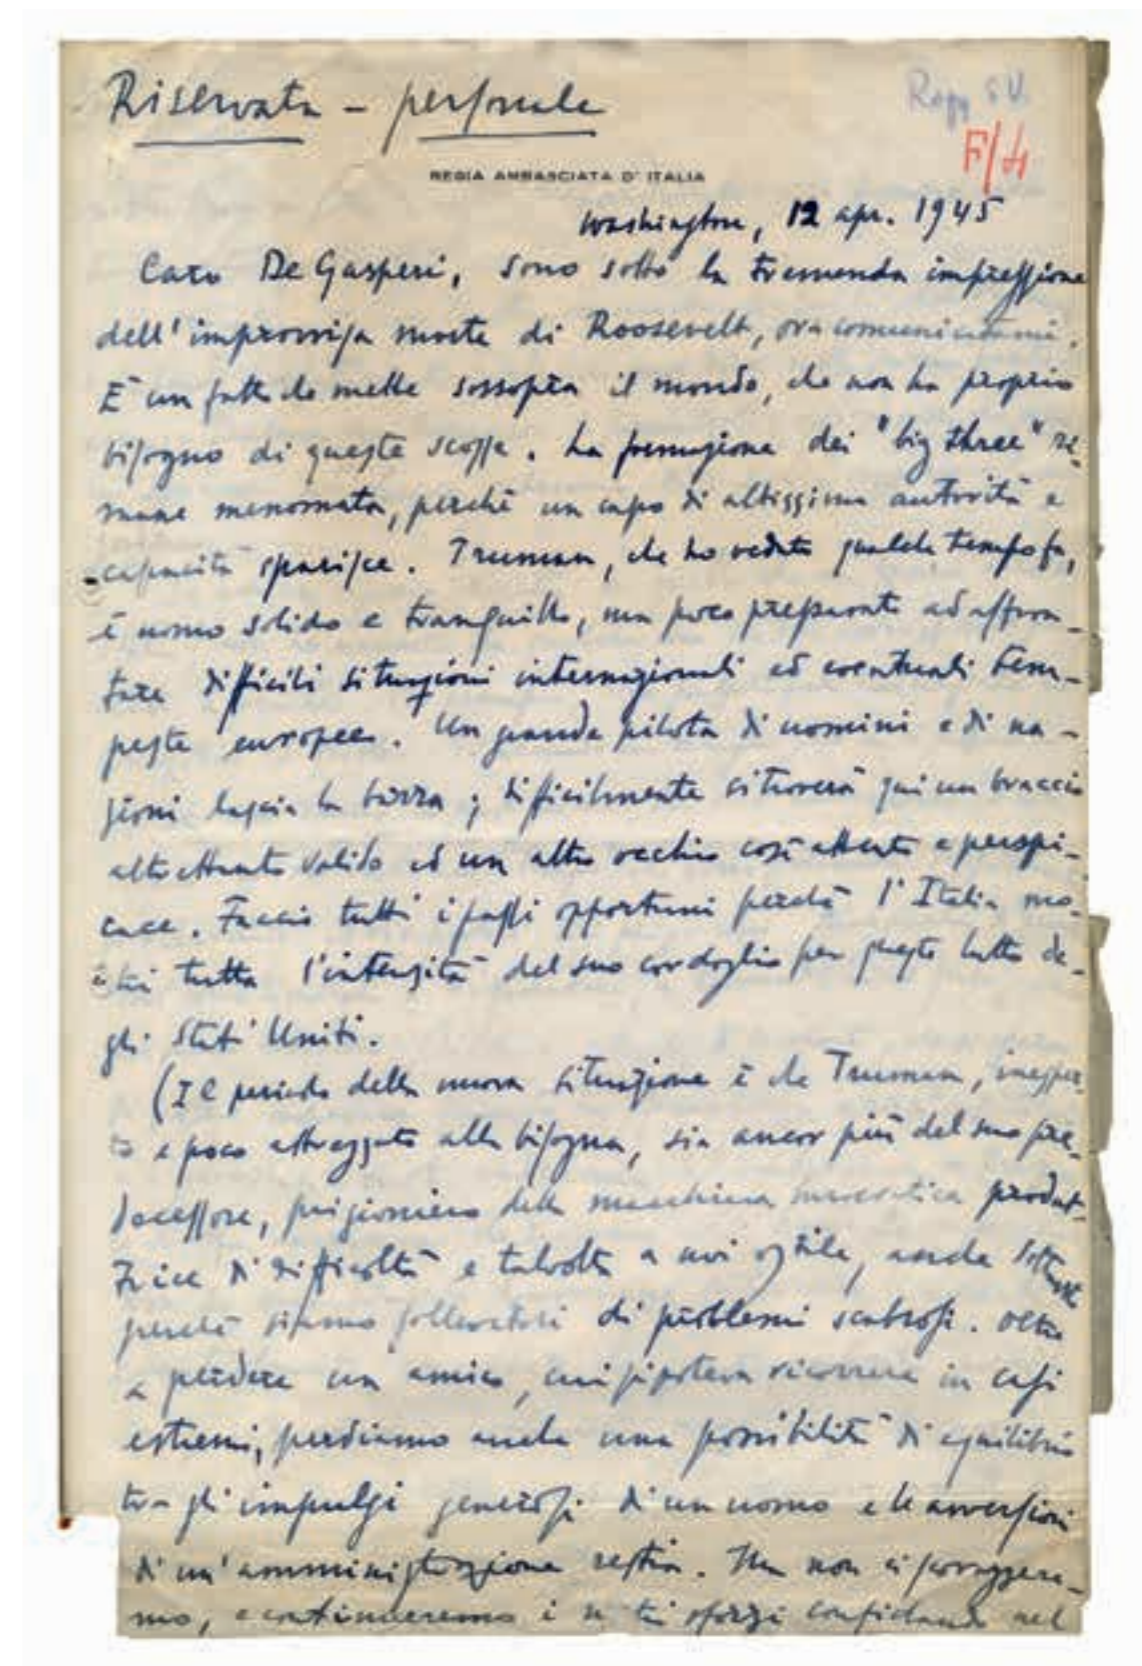 Riservata - personale
F/4
REGIA AMBASCIATA D'ITALIA
Washington, 12 apr. 1945
Caro De Gasperi, sono sotto la tremenda impressione
dell'improvvisa morte di Roosevelt, ora comunicatami.
È un fatto che mette sossopra il mondo, che non ha proprio
bisogno di queste scosse. La funzione dei "big three" ri-
mane menomata, perchè un capo di altissima autorità e
capacità sparisce. Truman, che ho veduto qualche tempo fa,
è uomo solido e tranquillo, ma poco preparato ad affron-
tare difficili situazioni internazionali ed eventuali tem-
peste europee. Un grande pilota di uomini e di na-
zioni lascia la barra; difficilmente si troverà qui un braccio
altrettanto valido ed un altro occhio così attento e perspi-
cace. Faccio tutti i passi opportuni perchè l'Italia mo-
stri tutta l'intensità del suo cordoglio per questo lutto de-
gli Stati Uniti.
(Il pericolo della nuova situazione è che Truman, inesper-
to e poco attrezzato alla bisogna, sia ancor più del suo pre-
decessore, prigioniero della macchina burocratica produt-
trice di difficoltà e talvolta a noi ostile, anche
perchè siamo sollevatori di problemi scabrosi. Oltre
a perdere un amico, cui si poteva ricorrere in casi
estremi, perdiamo anche una possibilità di equilibrio
tra gli impulsi generosi di un uomo e le avversioni
di un'amministrazione restia. Ma non ci scoraggere-
mo, e continueremo i sforzi confidando nel